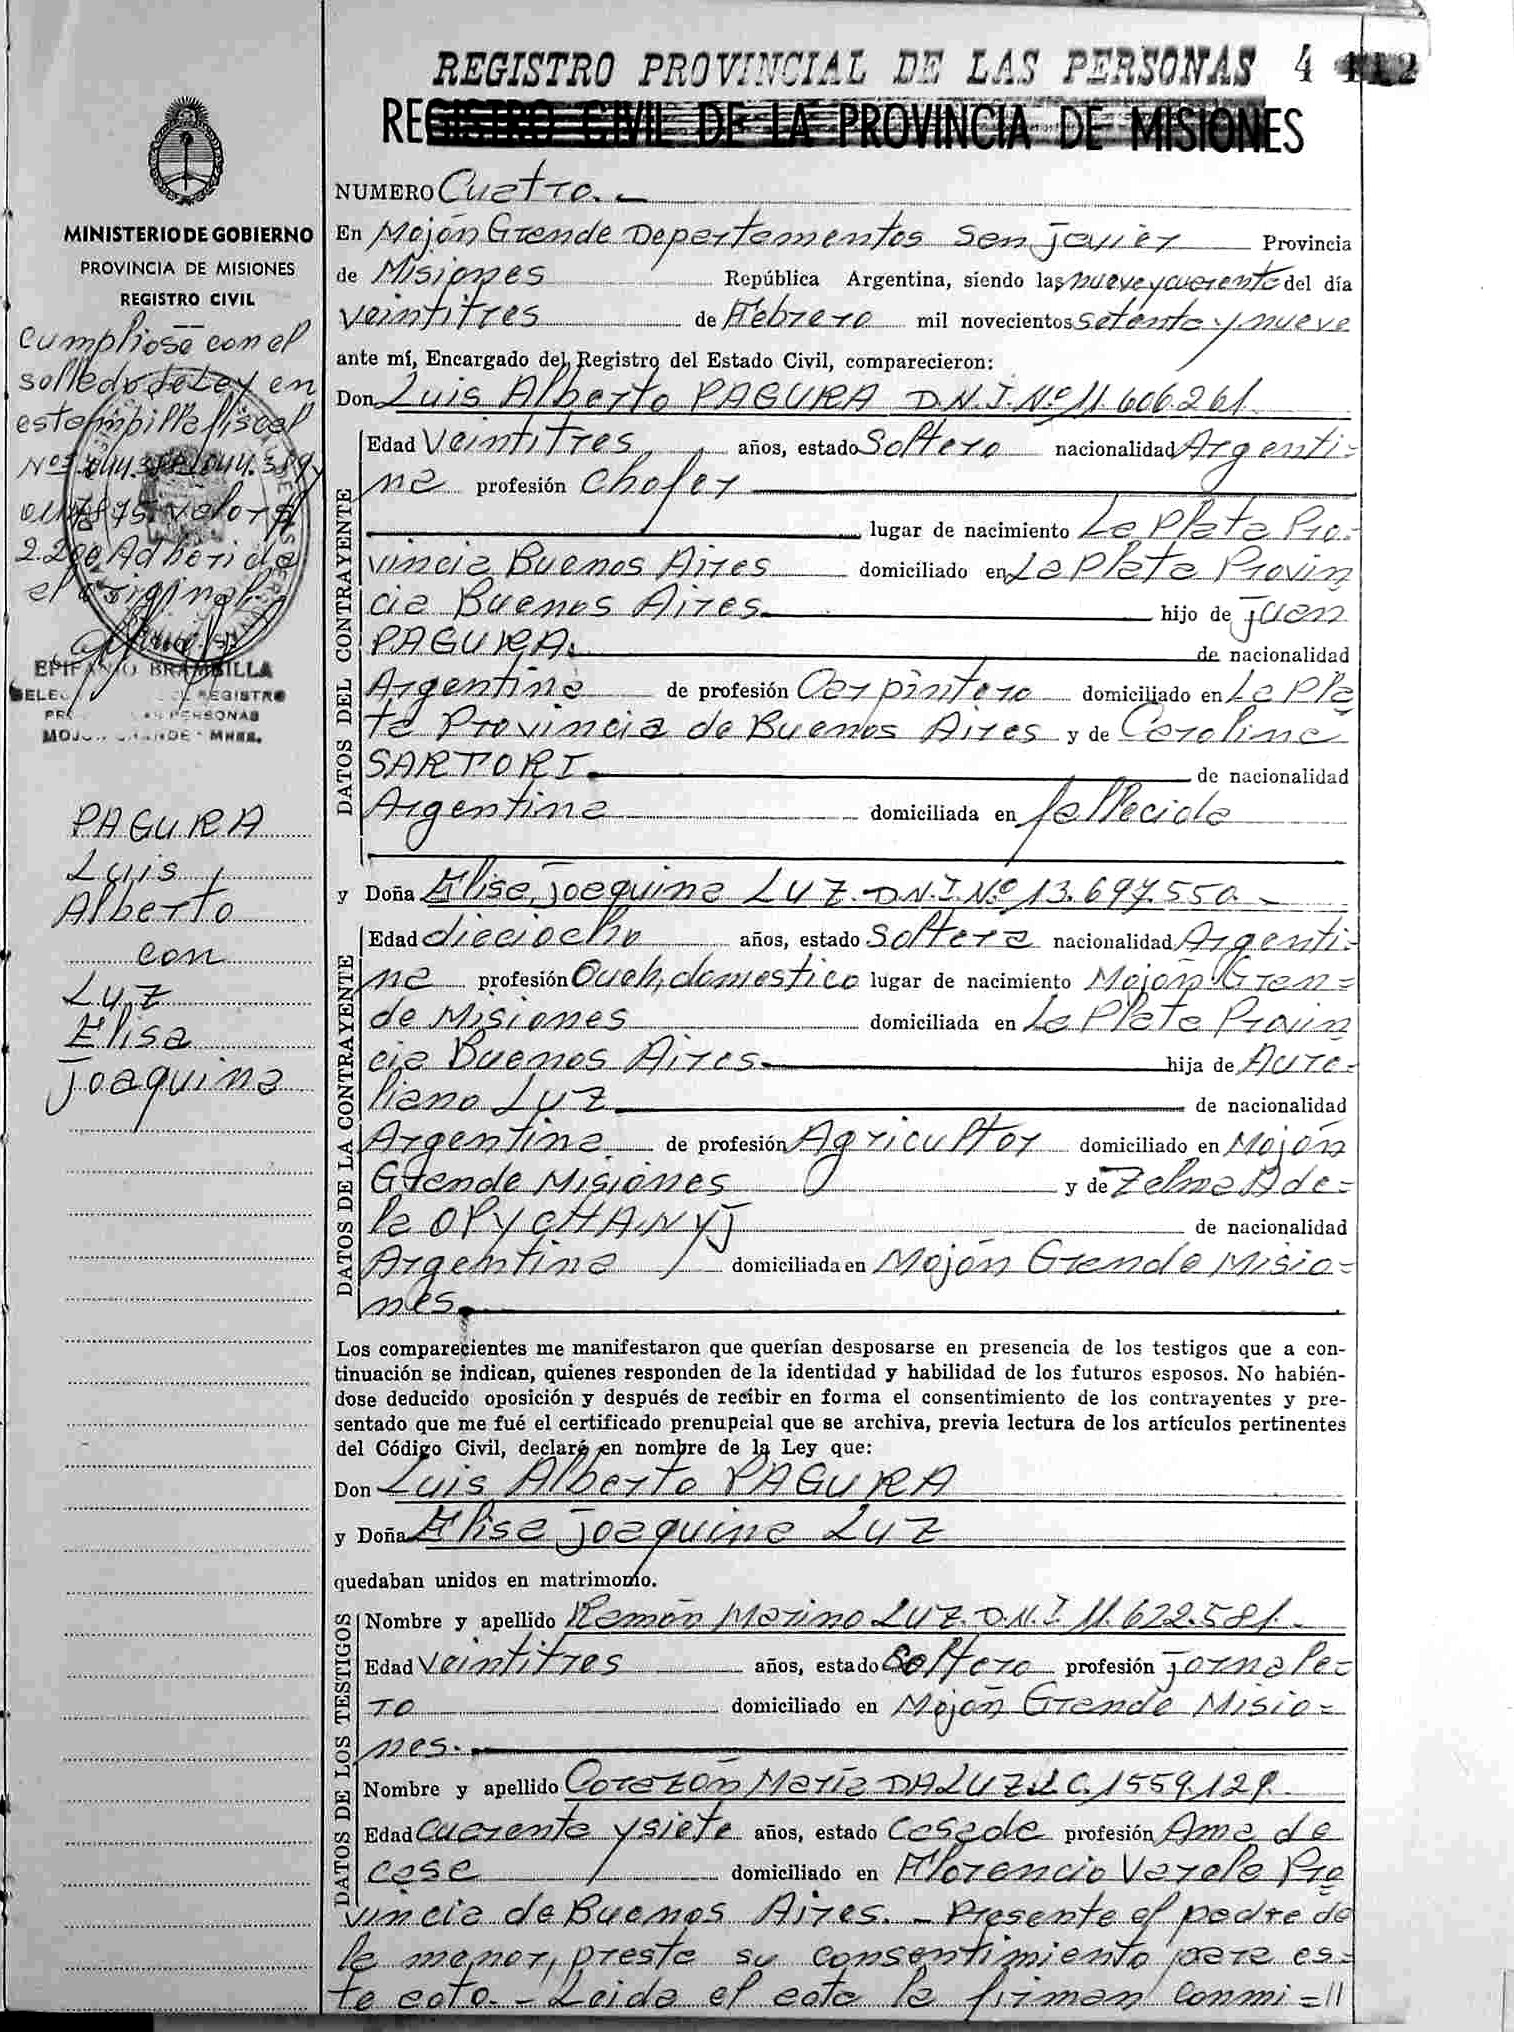 REGISTRO PROVINCIAL DE LAS PERSONAS 4
REGISTRO CIVIL DE LA PROVINCIA DE MISIONES
MINISTERIO DE GOBIERNO
PROVINCIA DE MISIONES
REGISTRO CIVIL
Cumpliose con el
sellado de Ley en
estampilla fiscal
valor $
2.200 Adherida
el original.
EPIFANIO BRAMBILLA
REGISTRO
PERSONAS
PAGURA
Luis
Alberto
con
Luz
Elisa
Joaquina
NUMERO Cuatro.-
En Mojón Grande Departamentos San Javier Provincia
de Misiones República Argentina, siendo las nueve y cuarenta del día
veintitres de Febrero mil novecientos setenta y nueve
ante mí, Encargado del Registro del Estado Civil, comparecieron:
Don Luis Alberto PAGURA D.N.I. Nº 11.606.261
DATOS DEL CONTRAYENTE
Edad veintitres años, estado Soltero nacionalidad Argenti=
na profesión Chofer
lugar de nacimiento La Plata Pro-
vincia Buenos Aires domiciliado en La Plata Provin
cia Buenos Aires. hijo de Juan
PAGURA. de nacionalidad
Argentina de profesión Carpintero domiciliado en La Pla
ta Provincia de Buenos Aires y de Carolina
SARTORI. de nacionalidad
Argentina domiciliada en fallecida
y Doña Elisa Joaquina LUZ. D.N.I. Nº 13.697.550.-
DATOS DE LA CONTRAYENTE
Edad dieciocho años, estado Soltera nacionalidad Argenti=
na profesión Queh. domestico lugar de nacimiento Mojón Gran=
de Misiones domiciliada en La Plata Provin
cia Buenos Aires. hija de Aure=
liano LUZ de nacionalidad
Argentina de profesión Agricultor domiciliado en Mojón
Grande Misiones y de Zelma Ade=
la OPYCHANYJ de nacionalidad
Argentina domiciliada en Mojón Grande Misio=
nes.
Los comparecientes me manifestaron que querían desposarse en presencia de los testigos que a con-
tinuación se indican, quienes responden de la identidad y habilidad de los futuros esposos. No habién-
dose deducido oposición y después de recibir en forma el consentimiento de los contrayentes y pre-
sentado que me fué el certificado prenupcial que se archiva, previa lectura de los artículos pertinentes
del Código Civil, declaré en nombre de la Ley que:
Don Luis Alberto PAGURA
y Doña Elisa Joaquina LUZ
quedaban unidos en matrimonio.
DATOS DE LOS TESTIGOS
Nombre y apellido Ramón Marino LUZ. D.N.I. 11.622.581.-
Edad Veintitres años, estado Soltero profesión Jornale=
ro domiciliado en Mojón Grande Misio=
nes.-
Nombre y apellido Corazón María DALUZ L.C. 1559.129.
Edad Cuarenta y siete años, estado Casada profesión Ama de
casa domiciliado en Florencio Varela Pro
vincia de Buenos Aires.- Presente el padre de
la menor, presta su consentimiento para es=
te acto.- Leida el acta la firman conmi=//